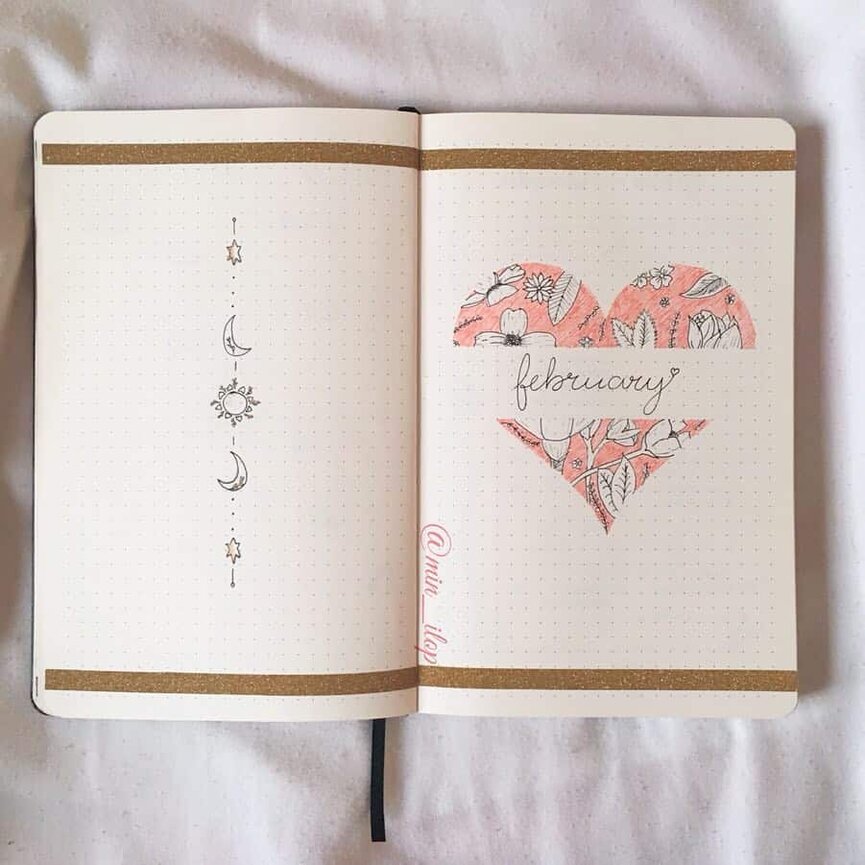 february
@min_ilop